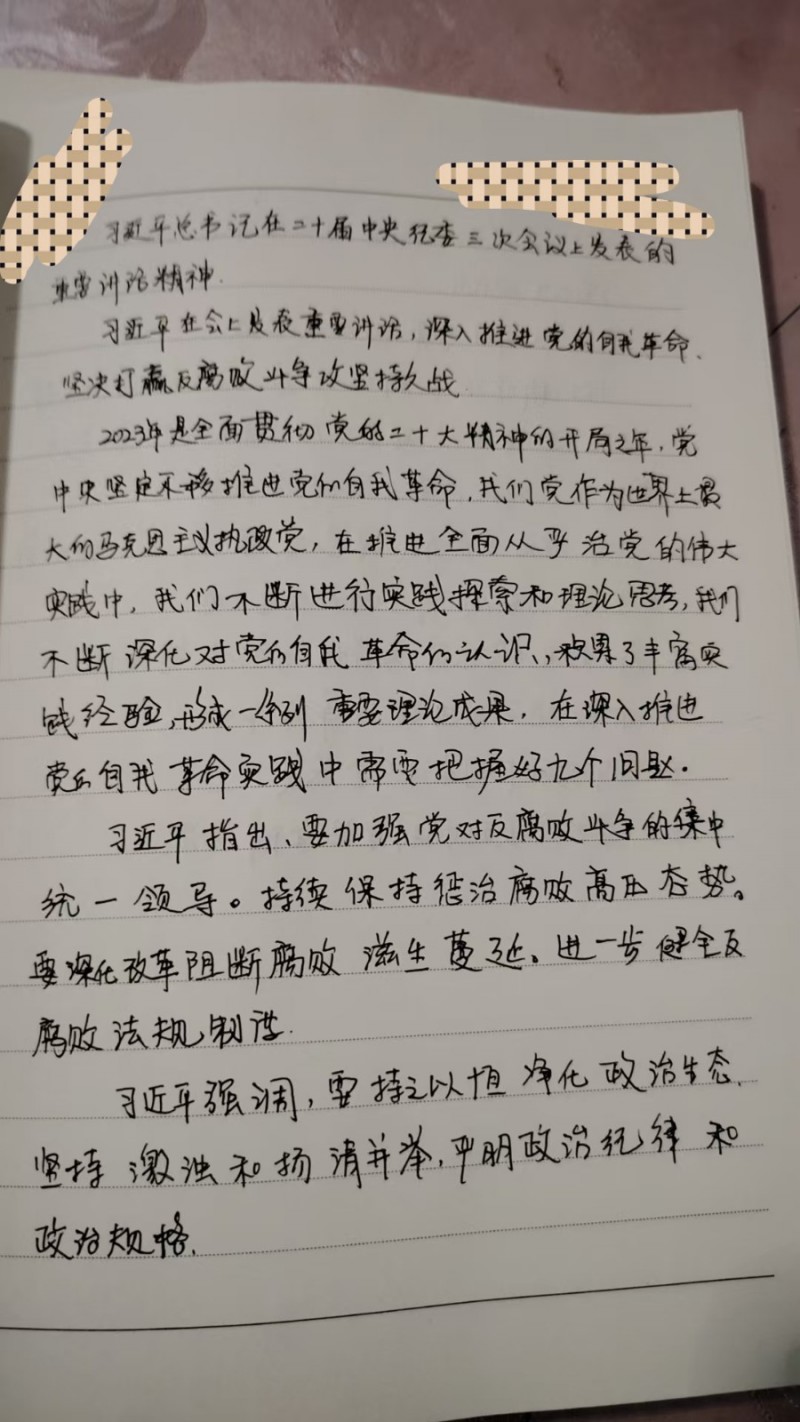 习近平总书记在二十届中央纪委三次会议上发表的
重要讲话精神.
习近平在会上发表重要讲话,深入推进党的自我革命、
坚决打赢反腐败斗争攻坚持久战
2023年是全面贯彻党的二十大精神的开局之年,党
中央坚定不移推进党的自我革命,我们党作为世界上最
大的马克思主义执政党,在推进全面从严治党的伟大
实践中,我们不断进行实践探索和理论思考,我们
不断深化对党的自我革命的认识,积累了丰富实
践经验,形成一系列重要理论成果,在深入推进
党的自我革命实践中需要把握好九个问题.
习近平指出、要加强党对反腐败斗争的集中
统一领导。持续保持惩治腐败高压态势。
要深化改革阻断腐败滋生蔓延。进一步健全反
腐败法规制度.
习近平强调,要持之以恒净化政治生态、
坚持激浊和扬清并举,严明政治纪律和
政治规格.